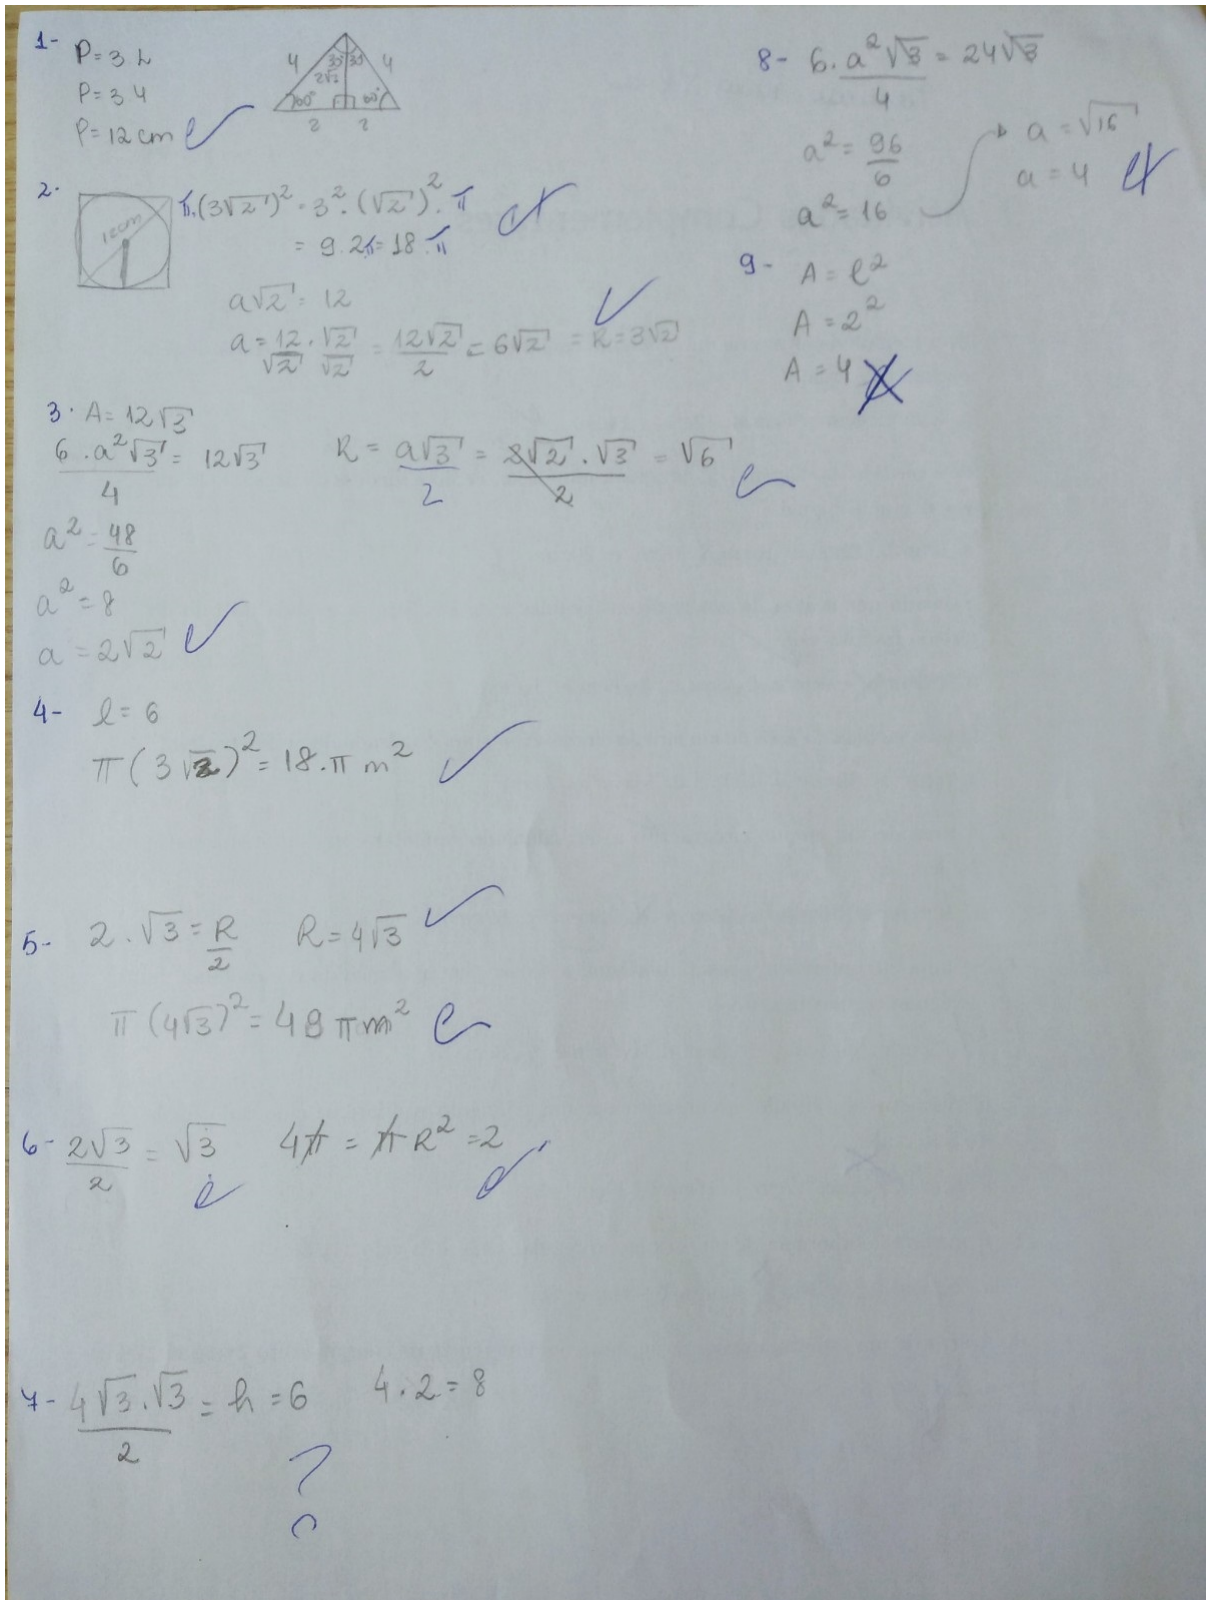 1- P=3 L
P=3 4
P=12 cm
4 30° 30° 4
2√3
60° 60°
2 2
2. 12cm
π.(3√2)² = 3².(√2)².π
= 9.2π = 18.π
a√2 = 12
a = 12/√2 . √2/√2 = 12√2/2 = 6√2 = R=3√2
3. A= 12√3
6.a²√3/4 = 12√3
a² = 48/6
a² = 8
a = 2√2
R = a√3/2 = 2√2.√3/2 = √6
4- l= 6
π(3√2)² = 18.π m²
5- 2.√3 = R/2 R=4√3
π(4√3)² = 48 π m²
6- 2√3/2 = √3 4π = πR² = 2
7- 4√3.√3/2 = h = 6 4.2 = 8
?
8- 6.a²√3/4 = 24√3
a² = 96/6
a² = 16
a = √16
a = 4
9- A = l²
A = 2²
A = 4